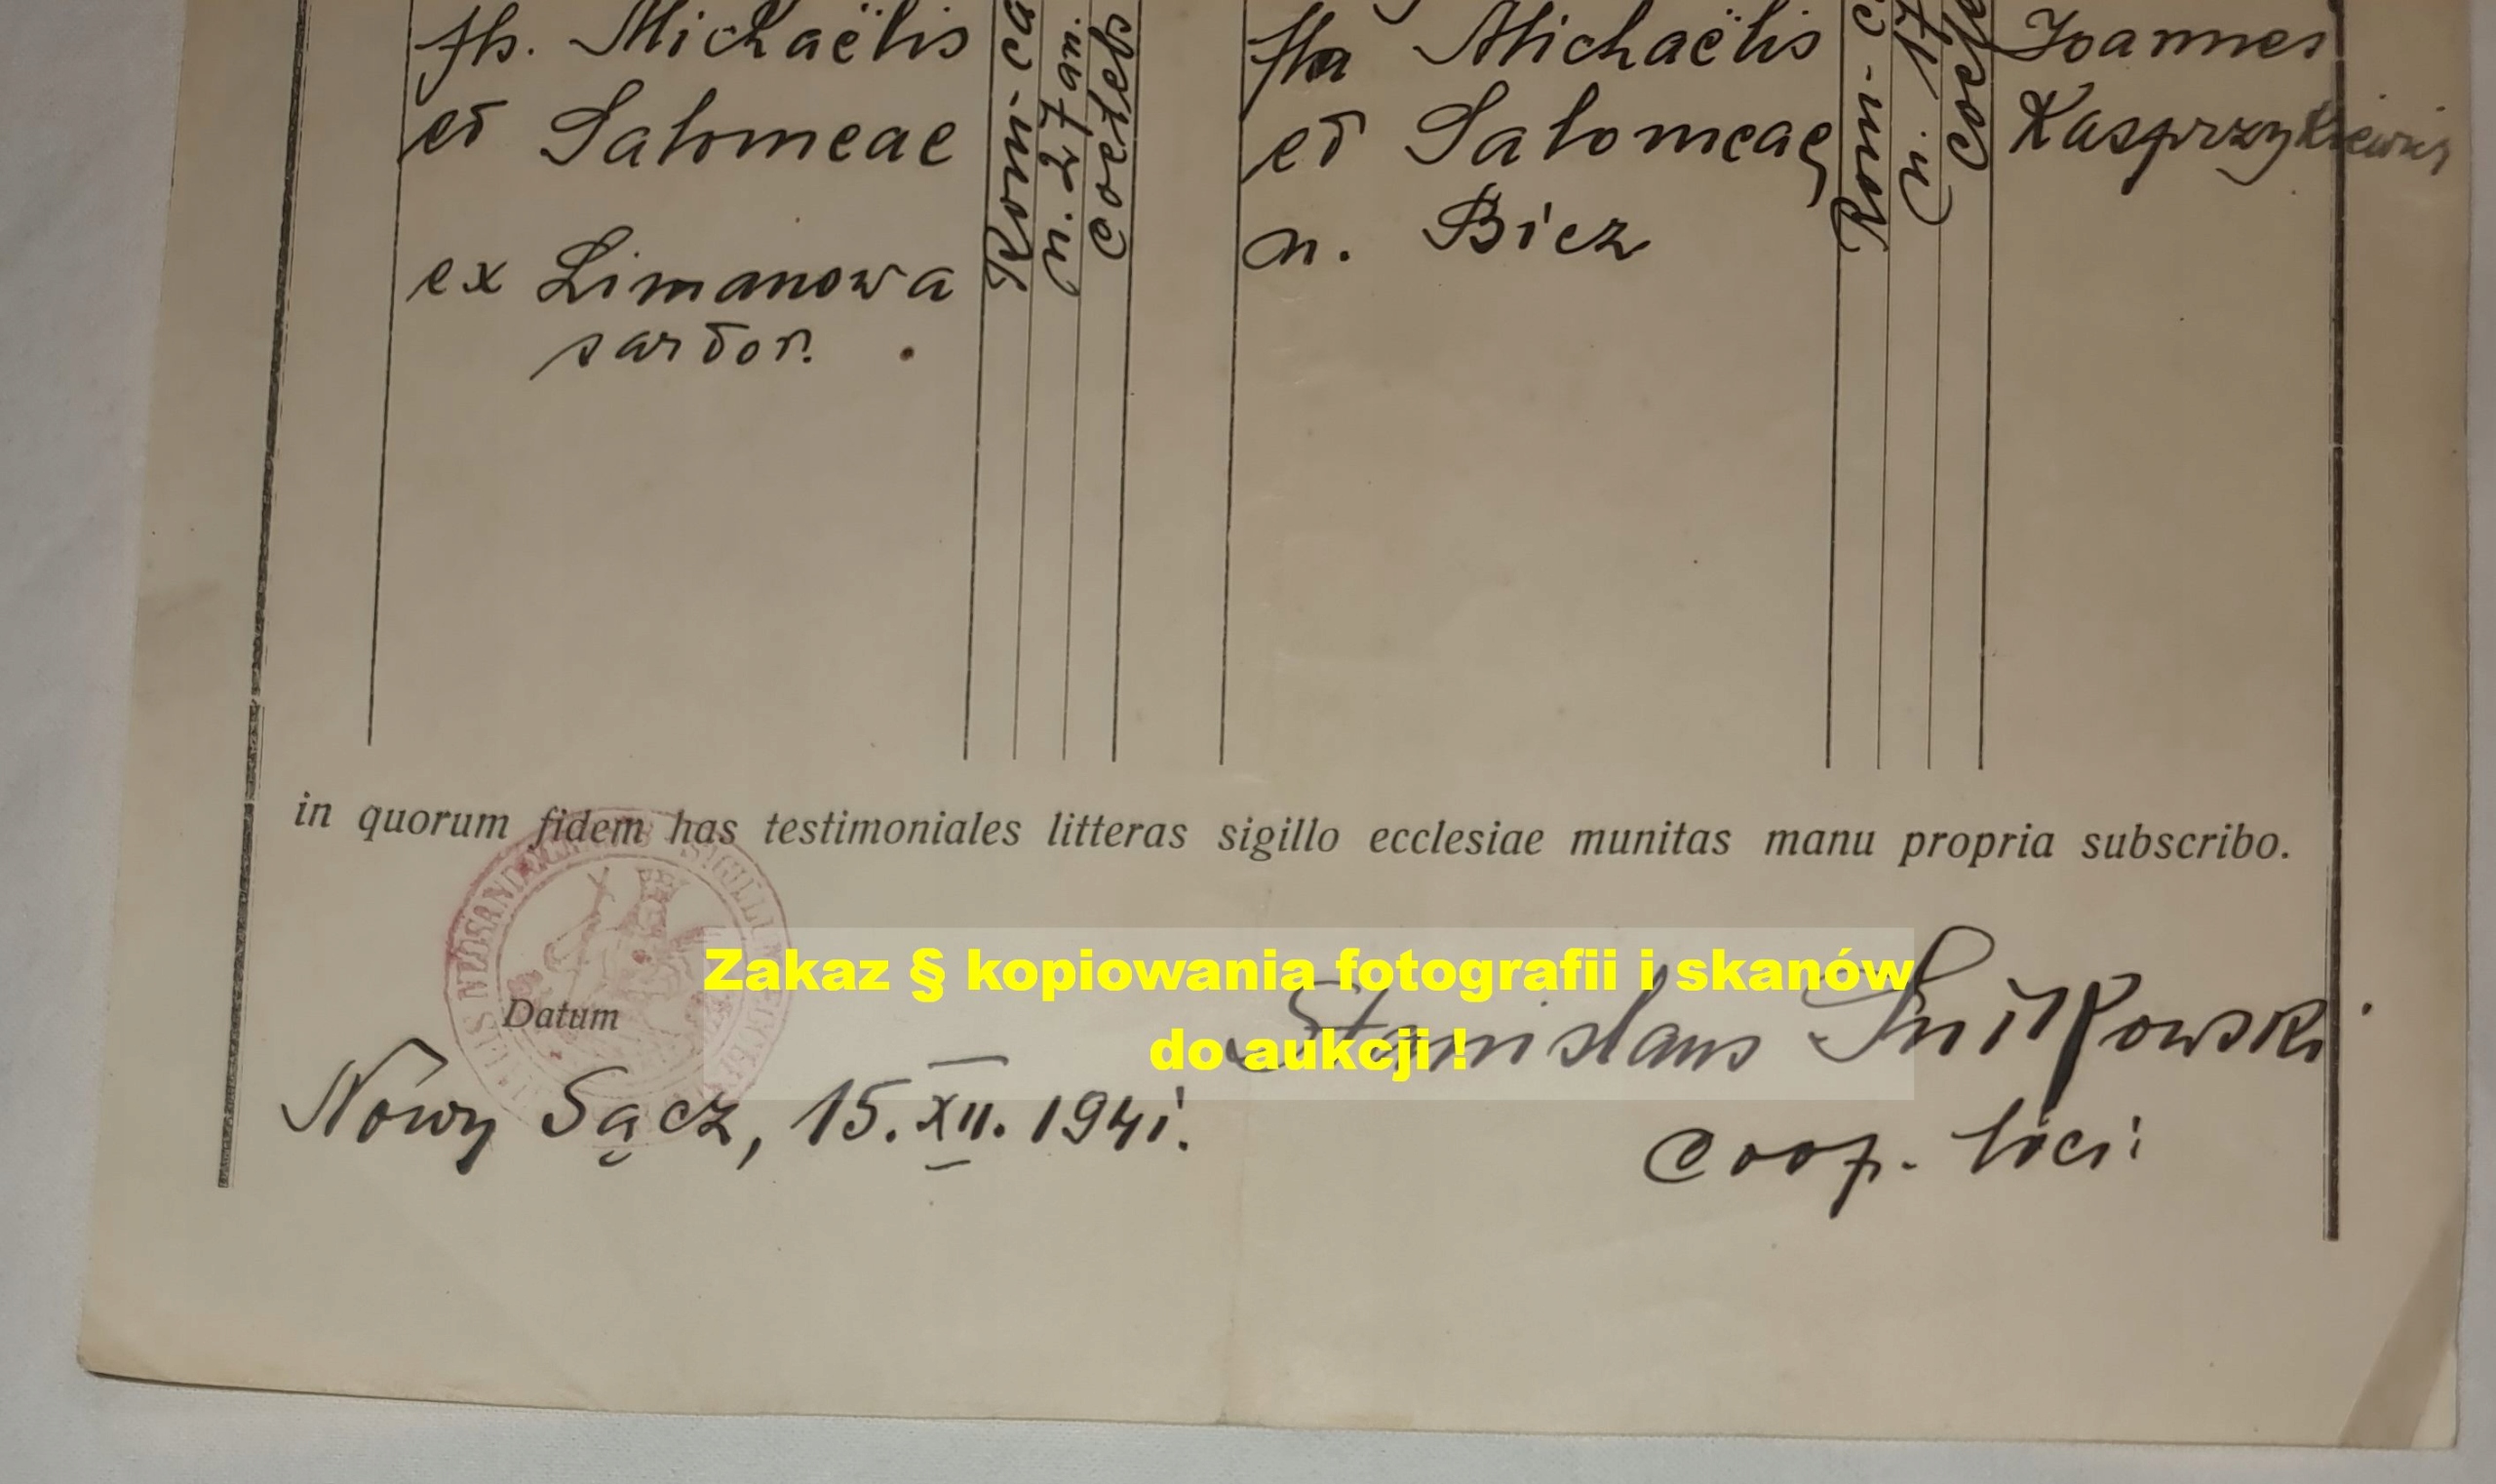 fls. Michaëlis
et Salomeae
ex Limanowa
sartor.
Rom-ca
n. 27 an.
coelebs
fla Michaëlis
et Salomeae
n. Bicz
Rom-c
n. 17
Joannes
Kasprzykiewicz
in quorum fidem has testimoniales litteras sigillo ecclesiae munitas manu propria subscribo.
Zakaz § kopiowania fotografii i skanów
do aukcji !
Datum
Nowy Sącz, 15. XII. 1941.
Stanislaus
coop. loci